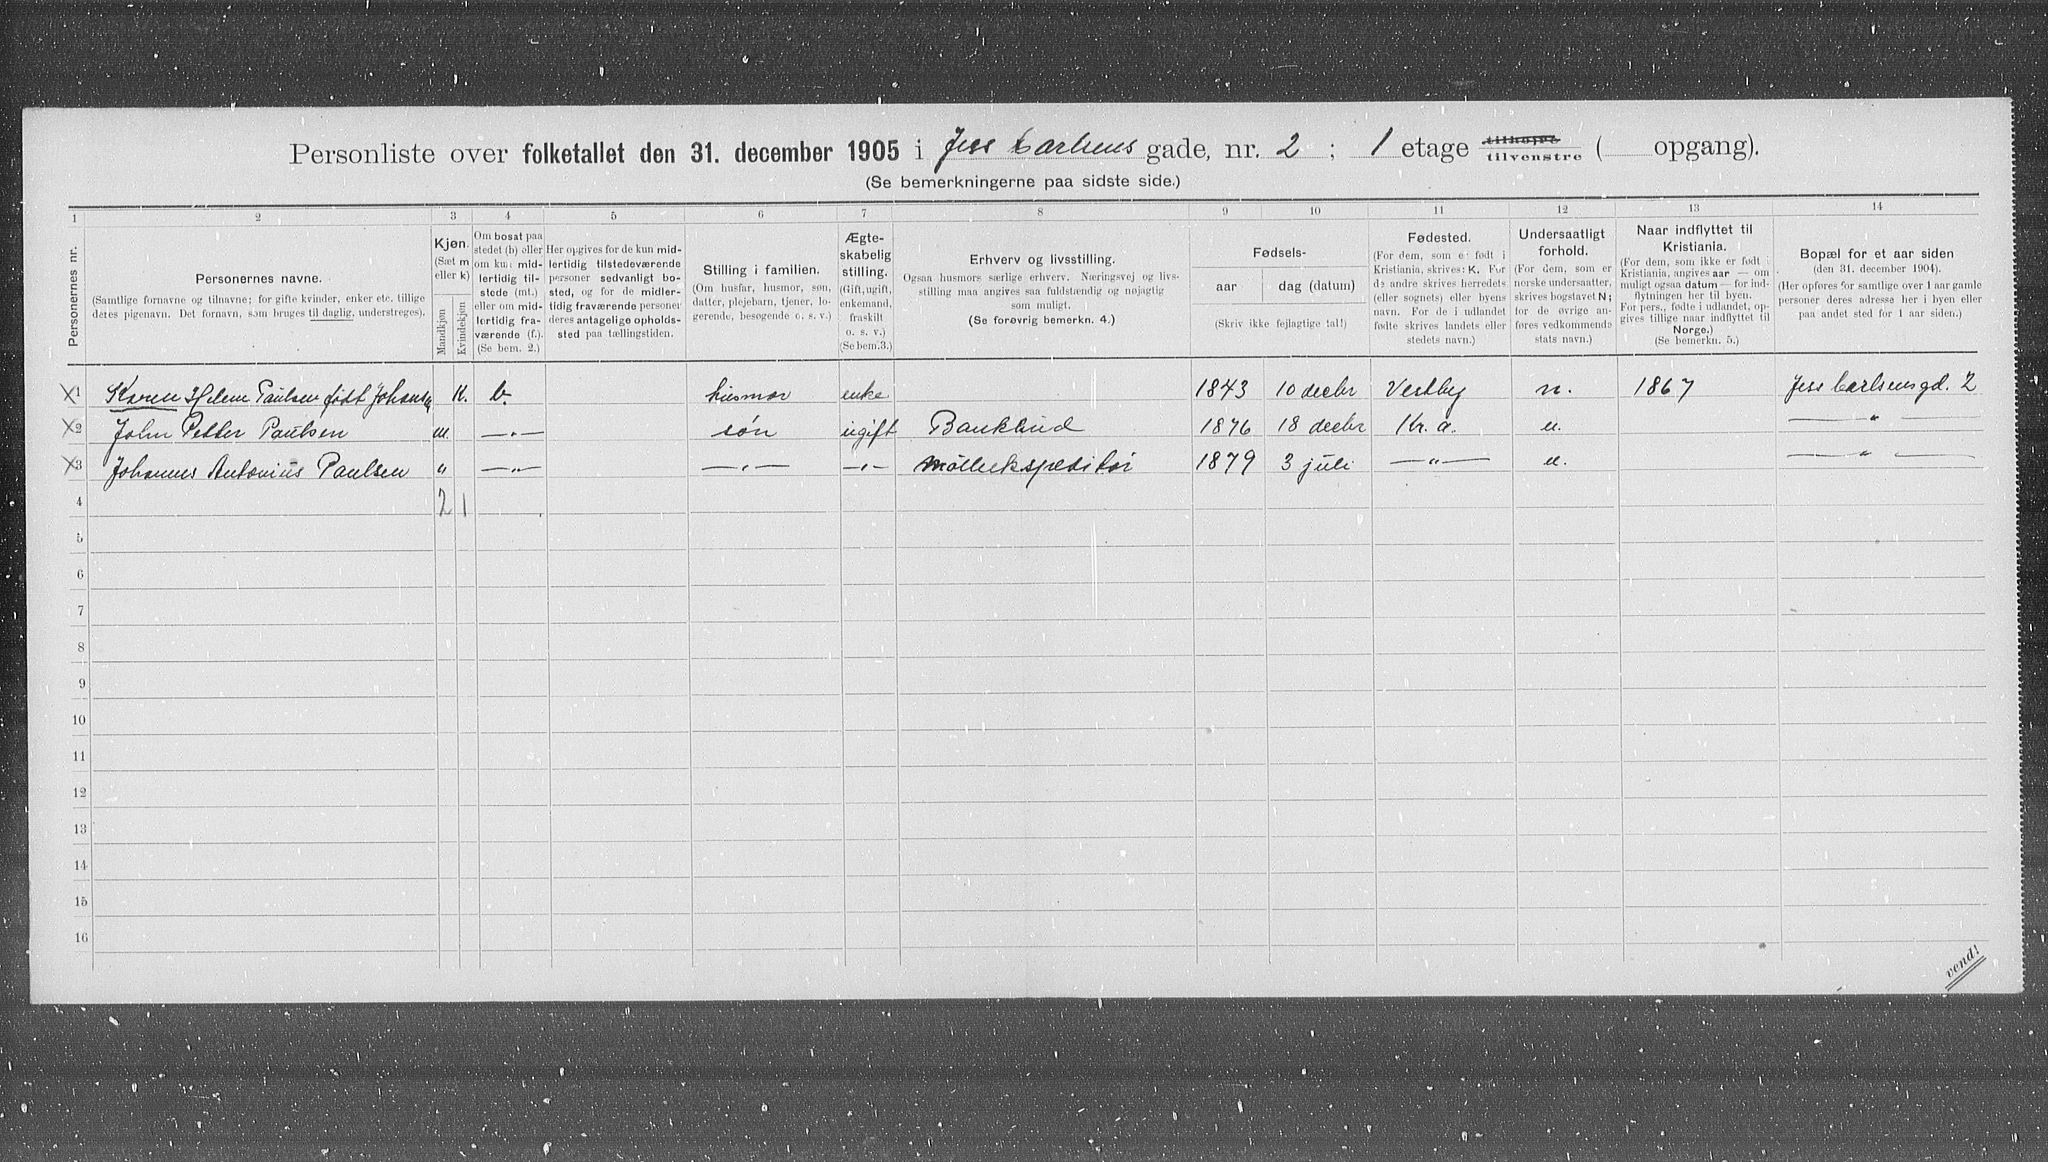 Personliste over folketallet den 31. december 1905 i Jess Carlsens gade, nr. 2 ; 1 etage tilhøjre tilvenstre ( opgang).
(Se bemerkningerne paa sidste side.)
1 2 3 4 5 6 7 8 9 10 11 12 13 14
Personernes nr.
Personernes navne.
(Samtlige fornavne og tilnavne; for gifte kvinder, enker etc. tillige
deres pigenavn. Det fornavn, som bruges til daglig, understreges).
Kjøn.
(Sæt m
eller k)
Mandkjøn
Kvindekjøn
Om bosat paa
stedet (b) eller
om kun midlertidig
tilstede (mt.)
eller om midlertidig
fraværende (f.).
(Se bem. 2.)
Her opgives for de kun midlertidig
tilstedeværende
personer sedvanligt bosted,
og for de midlertidig
fraværende personer
deres antagelige opholdssted
paa tællingstiden.
Stilling i familien.
(Om husfar, husmor, søn,
datter, plejebarn, tjener, logerende,
besøgende o. s. v.)
Ægteskabelig
stilling.
(Gift, ugift,
enkemand,
fraskilt
o. s. v.)
(Se bem.3.)
Erhverv og livsstilling.
Ogsaa husmors særlige erhverv. Næringsvej og livsstilling
maa angives saa fuldstændig og nøjagtig
som muligt.
(Se forøvrig bemerkn. 4.)
Fødsels-
aar
dag (datum)
(Skriv ikke fejlagtige tal!)
Fødested.
(For dem, som er født i
Kristiania, skrives: K. For
de andre skrives herredets
(eller sognets) eller byens
navn. For de i udlandet
fødte skrives landets eller
stedets navn.)
Undersaatligt
forhold.
(For dem, som er
norske undersaatter,
skrives bogstavet N;
for de øvrige anføres
vedkommende
stats navn.)
Naar indflyttet til
Kristiania.
(For dem, som ikke er født i
Kristiania, angives aar — om
muligt ogsaa datum — for indflytningen
her til byen.
For pers., fødte i udlandet, opgives
tillige naar indflyttet til
Norge.)
(Se bemerkn. 5.)
Bopæl for et aar siden
(den 31. december 1904).
(Her opføres for samtlige over 1 aar gamle
personer deres adresse her i byen eller
paa andet sted for 1 aar siden.)
1 Karen Helene Paulsen født Johansen k. b. husmor enke 1843 10 decbr Vestby n. 1867 Jess Carlsensgd. 2
2 John Petter Paulsen m. —„— søn ugift Bankbud 1876 18 decbr Kr.a. n. —„—
3 Johannes Antonius Paulsen „ —„— —„— —„— Møllekspeditør 1879 3 juli —„— n. —„—
4 2 1
5
6
7
8
9
10
11
12
13
14
15
16
vend!